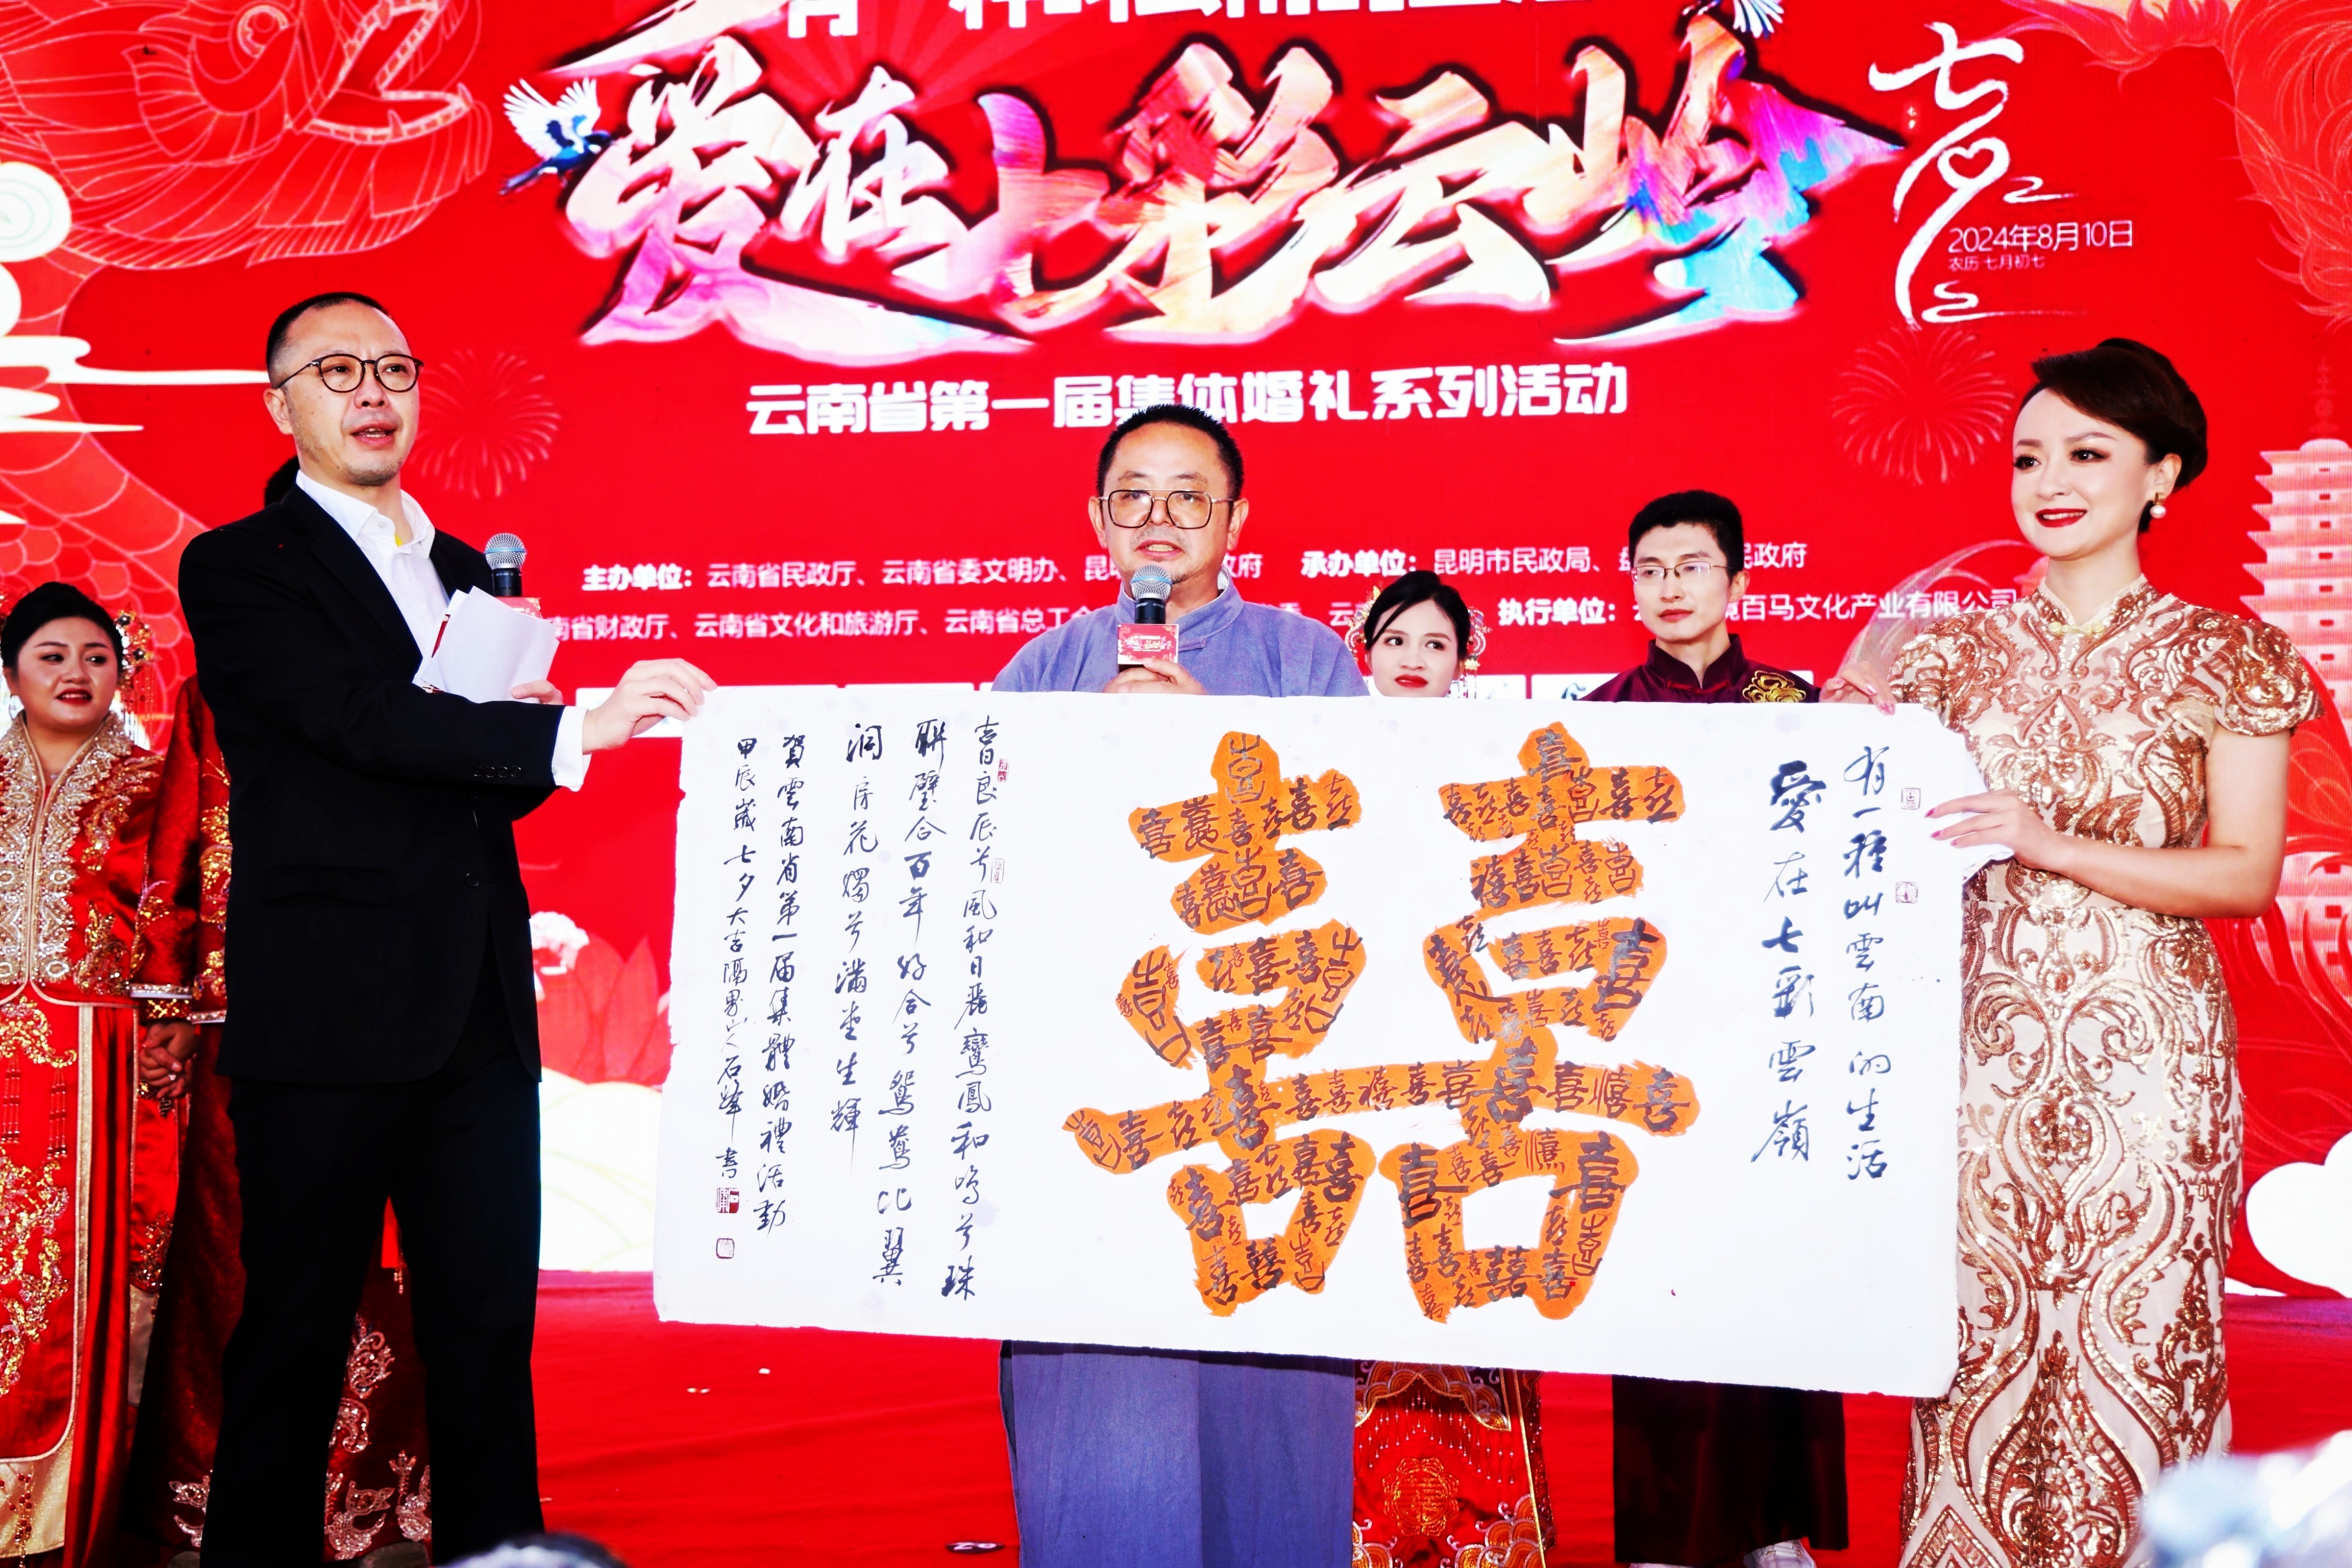 爱在七彩云岭
七夕
2024年8月10日
农历 七月初七
云南省第一届集体婚礼系列活动
主办单位：云南省民政厅、云南省委文明办、昆
政府
承办单位：昆明市民政局、
民政府
南省财政厅、云南省文化和旅游厅、云南省总工会
执行单位：
百马文化产业有限公司
有一種叫雲南的生活
愛在七彩雲嶺
囍
吉日良辰兮風和日麗鸞鳳和鳴兮珠
聯璧合百年好合兮鴛鴦比翼
洞房花燭兮滿堂生輝
賀雲南省第一届集體婚禮活動
甲辰歲七夕大吉隔界山人石峰書